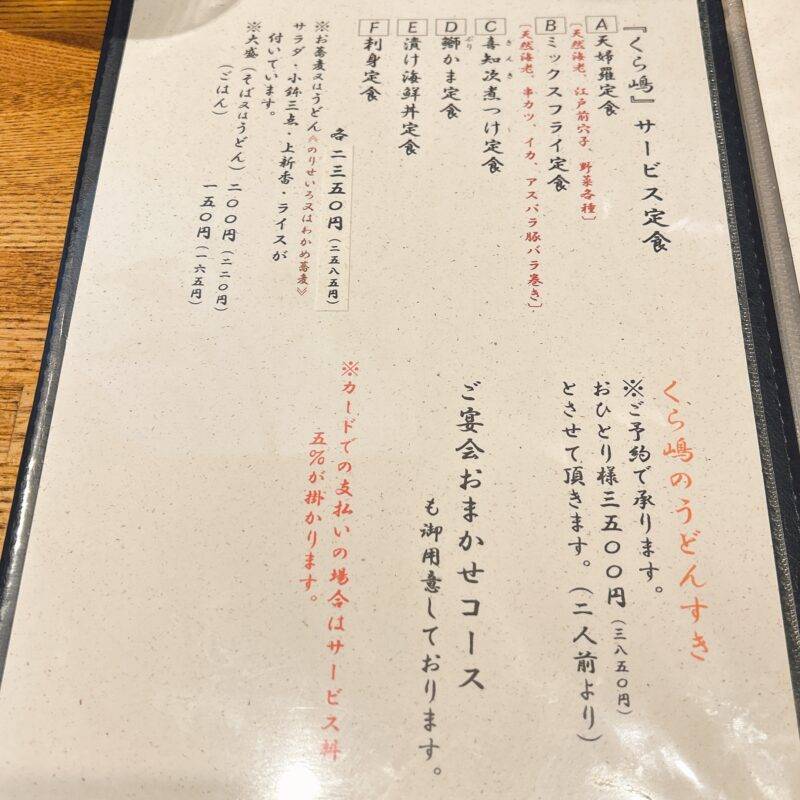 『くら嶋』サービス定食
A 天婦羅定食
〔天然海老、江戸前穴子、野菜各種〕
B ミックスフライ定食
〔天然海老、串カツ、イカ、アスパラ豚バラ巻き〕
C 喜知次煮つけ定食
きんき
D 鰤かま定食
ぶり
E 漬け海鮮丼定食
F 刺身定食
各 二三五〇円(二五八五円)
※お蕎麦又はうどん《のりせいろ又はわかめ蕎麦》
サラダ・小鉢三点・上新香・ライスが
付いています。
※大盛(そば又はうどん)二〇〇円(二二〇円)
(ごはん) 一五〇円(一六五円)
くら嶋のうどんすき
※ご予約で承ります。
おひとり様三五〇〇円(三八五〇円)
とさせて頂きます。(二人前より)
ご宴会おまかせコース
も御用意しております。
※カードでの支払いの場合はサービス料
五%が掛かります。